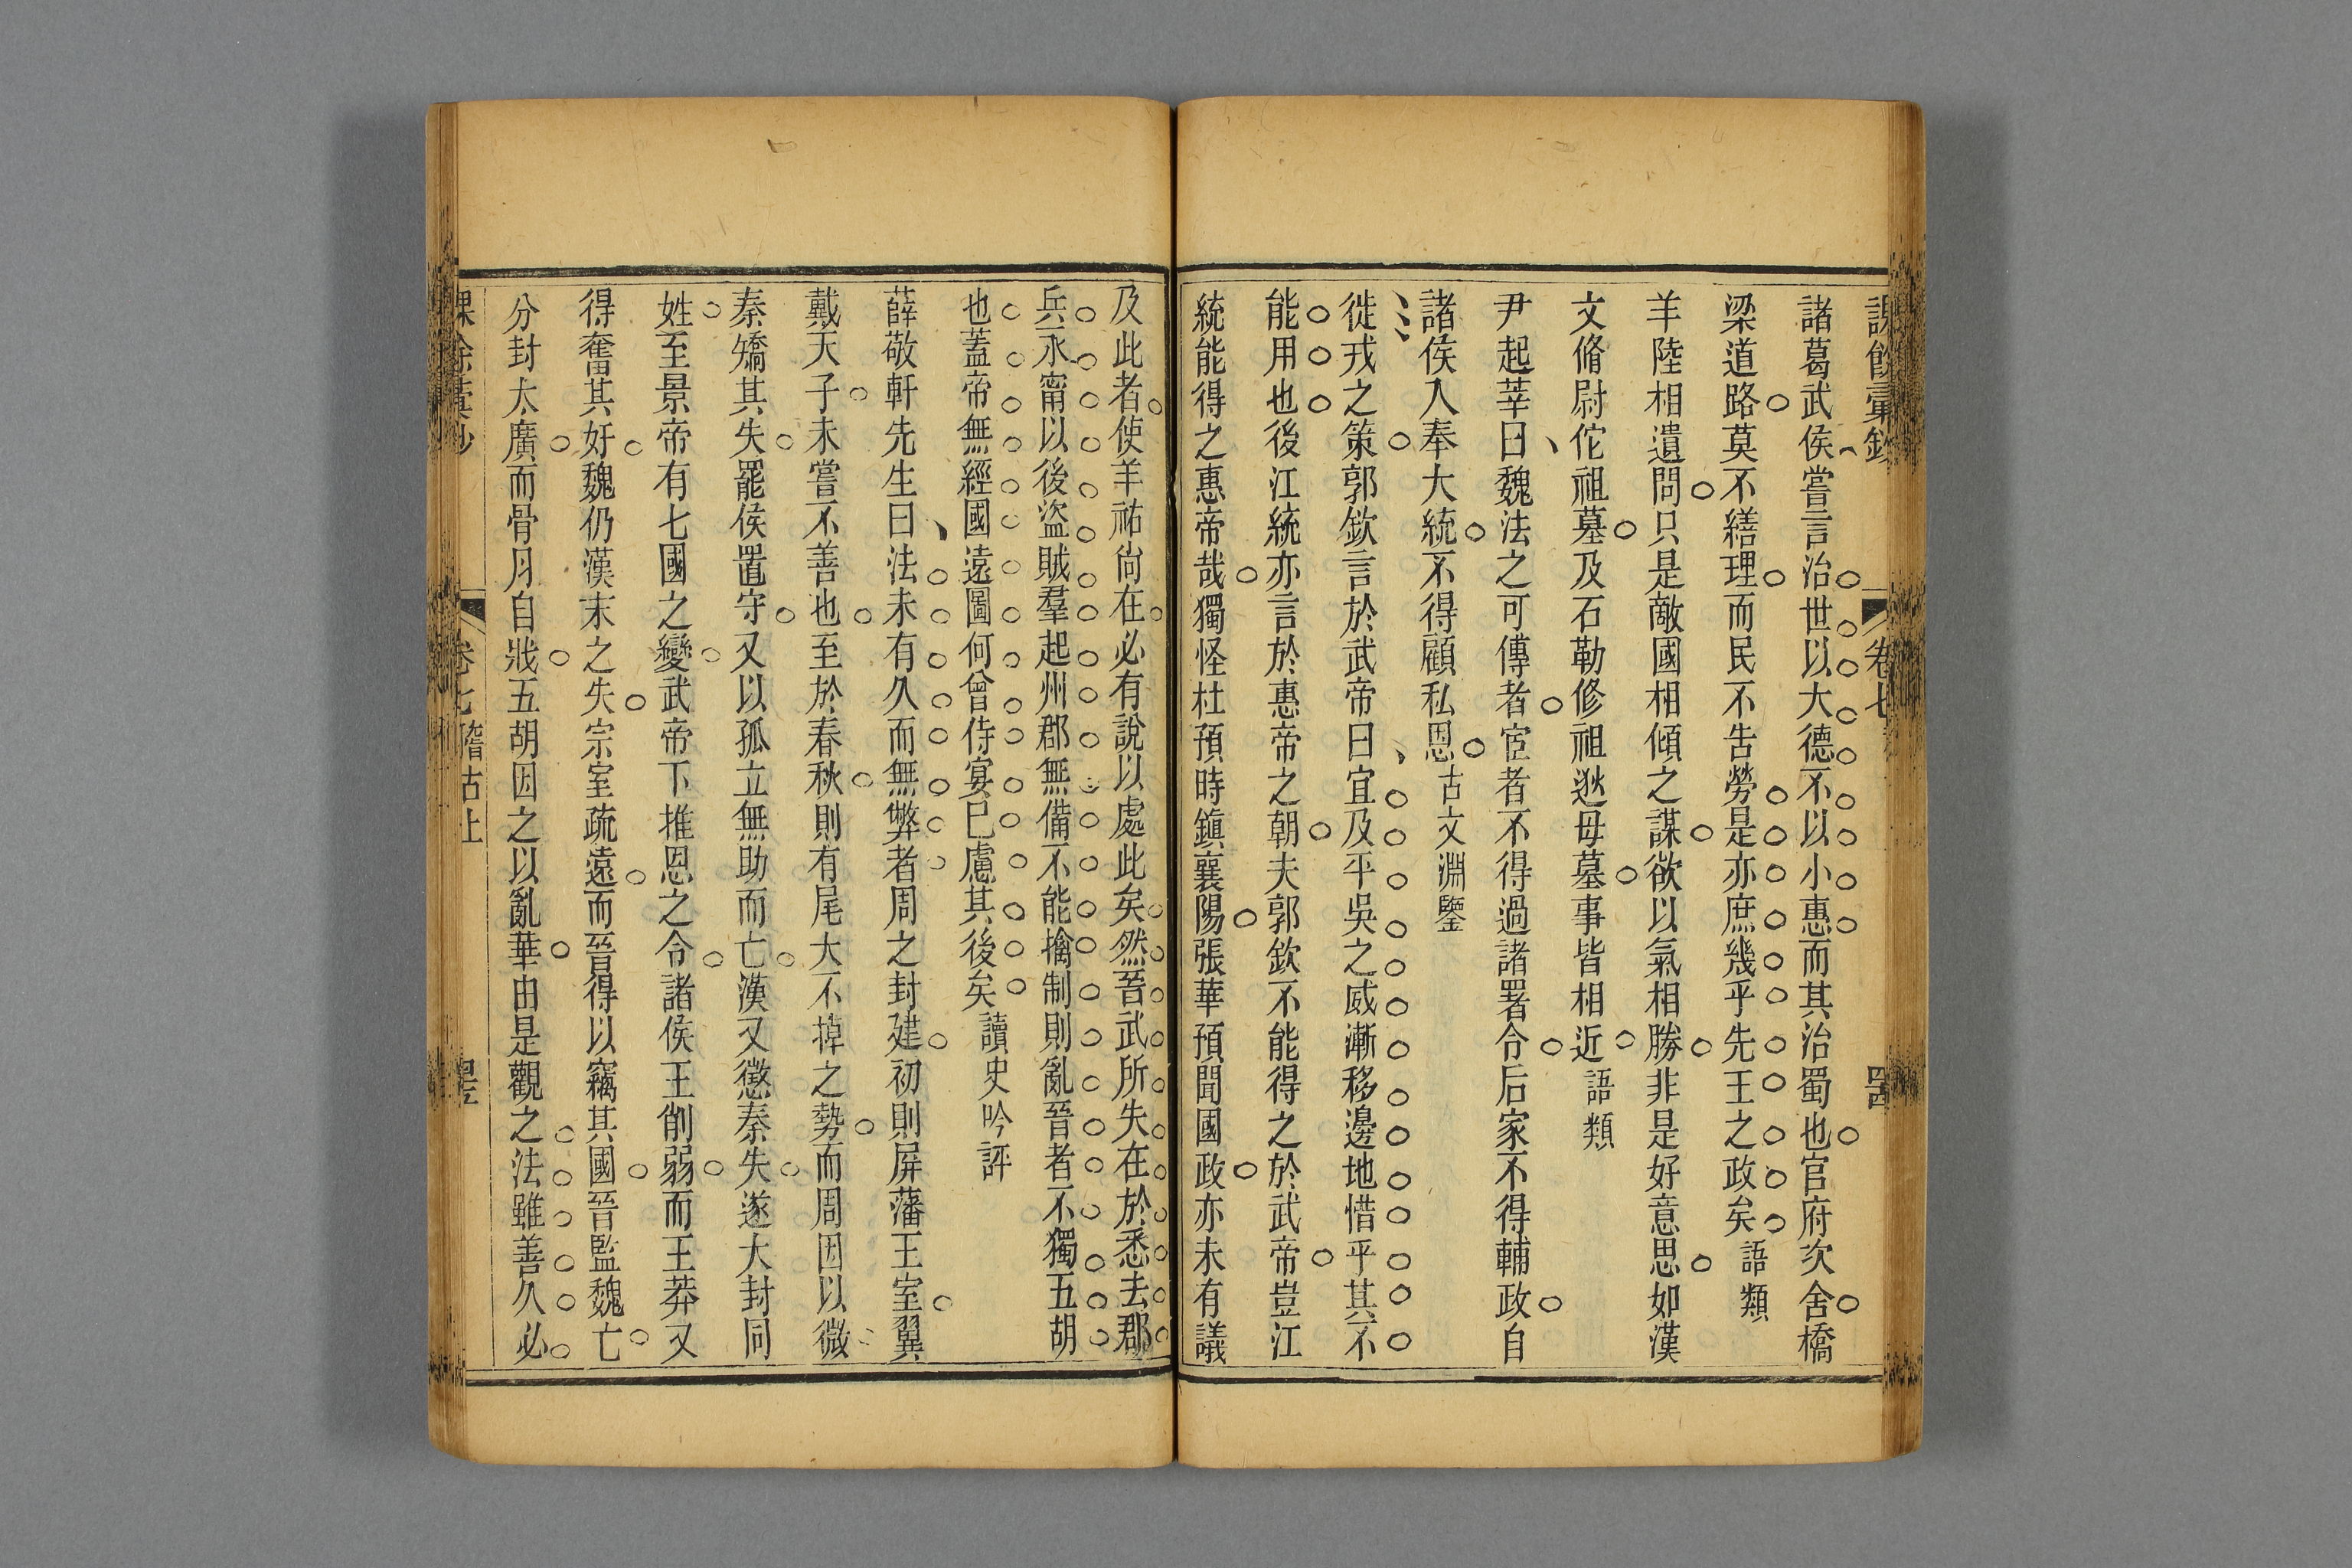 課餘彙鈔 卷七
諸葛武侯嘗言治世以大德不以小惠而其治蜀也官府次舍橋
梁道路莫不繕理而民不告勞是亦庶幾乎先王之政矣語類
羊陸相遺問只是敵國相傾之謀欲以氣相勝非是好意思如漢
文脩尉佗祖墓及石勒修祖逖母墓事皆相近語類
尹起莘曰魏法之可傳者宦者不得過諸署令后家不得輔政自
諸侯入奉大統不得顧私恩古文淵鑒
徙戎之策郭欽言於武帝曰宜及平吳之威漸移邊地惜乎其不
能用也後江統亦言於惠帝之朝夫郭欽不能得之於武帝豈江
統能得之惠帝哉獨怪杜預時鎮襄陽張華預聞國政亦未有議
及此者使羊祜尙在必有說以處此矣然晉武所失在於悉去郡
兵永甯以後盜賊羣起州郡無備不能擒制則亂晉者不獨五胡
也蓋帝無經國遠圖何曾侍宴已慮其後矣讀史吟評
薛敬軒先生曰法未有久而無弊者周之封建初則屏藩王室翼
戴天子未嘗不善也至於春秋則有尾大不掉之勢而周因以微
秦矯其失罷侯置守又以孤立無助而亡漢又懲秦失遂大封同
姓至景帝有七國之變武帝下推恩之令諸侯王削弱而王莽又
得奮其奸魏仍漢末之失宗室疏遠而晉得以竊其國晉監魏亡
分封太廣而骨肉自戕五胡因之以亂華由是觀之法雖善久必
卷七稽古上